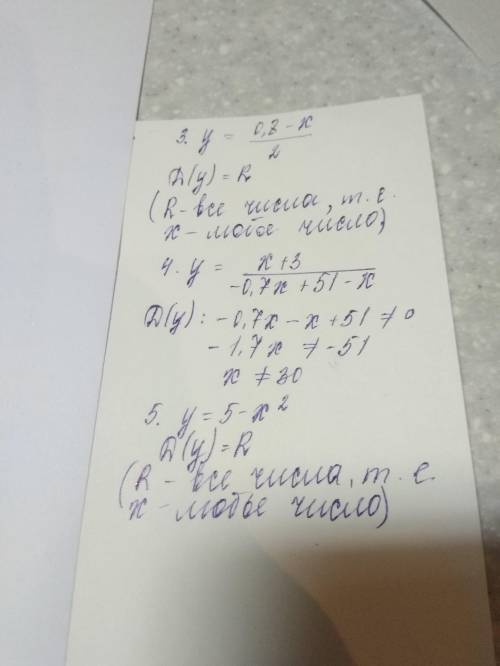 3. y = (0,8 - x)/2
D(y) = R
(R - все числа, т.е.
x - любое число)
4. y = (x+3)/(-0,7x + 51 - x)
D(y): -0,7x - x + 51 ≠ 0
-1,7x ≠ -51
x ≠ 30
5. y = 5 - x²
D(y) = R
(R - все числа, т.е.
x - любое число)